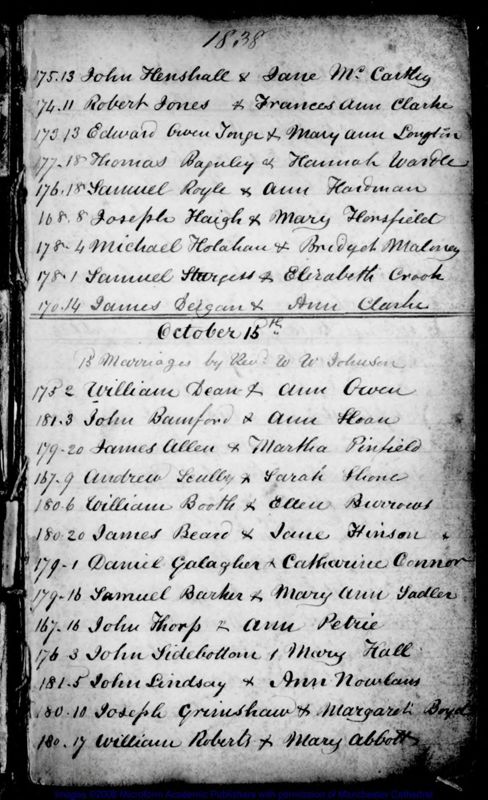 1838
175.13 John Henshall & Jane Mc Carthy
174.11 Robert Jones & Frances Ann Clarke
173 13 Edward Owen Tonge & Mary Ann
177-18 Thomas Baguley & Hannah Wardle
176.18 Samuel Royle & Ann Hardman
168.8 Joseph Haigh & Mary Horsfield
178-4 Michael Holahan & Bridget Maloney
178-1 Samuel Sturgess & Elizabeth Crook
170.14 James & Ann Clarke
October 15th
15 Marriages by Revd W W Johnson
175 2 William Dean & Ann Owen
181.3 John Bamford & Ann Sloan
179-20 James Allen & Martha Pinfield
167.9 Andrew Scully & Sarah Shone
180.6 William Booth & Ellen Burrows
180.20 James Beard & Jane Hinson
179-1 Daniel Galagher & Catharine Connor
179-16 Samuel Barker & Mary Ann Sadler
167.16 John Thorp & Ann Petrie
176 3 John Sidebottom & Mary Hall
181.5 John Lindsay & Ann Nowlans
180.10 Joseph Grimshaw & Margaret Boyd
180.17 William Roberts & Mary Abbott
images ©2008 Microform Academic Publishers with permission of Manchester Cathedral